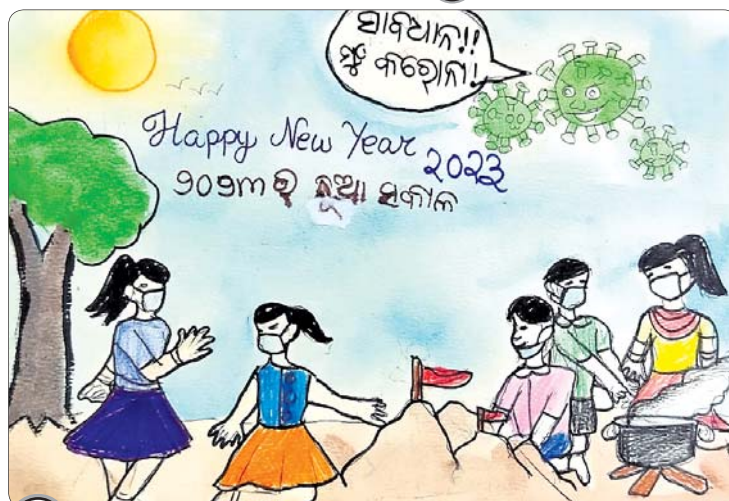 ସାବଧାନ!!
ମୁଁ କରୋନା!
Happy New Year 2023
୨୦୨୩ ର ନୂଆ ସକାଳ